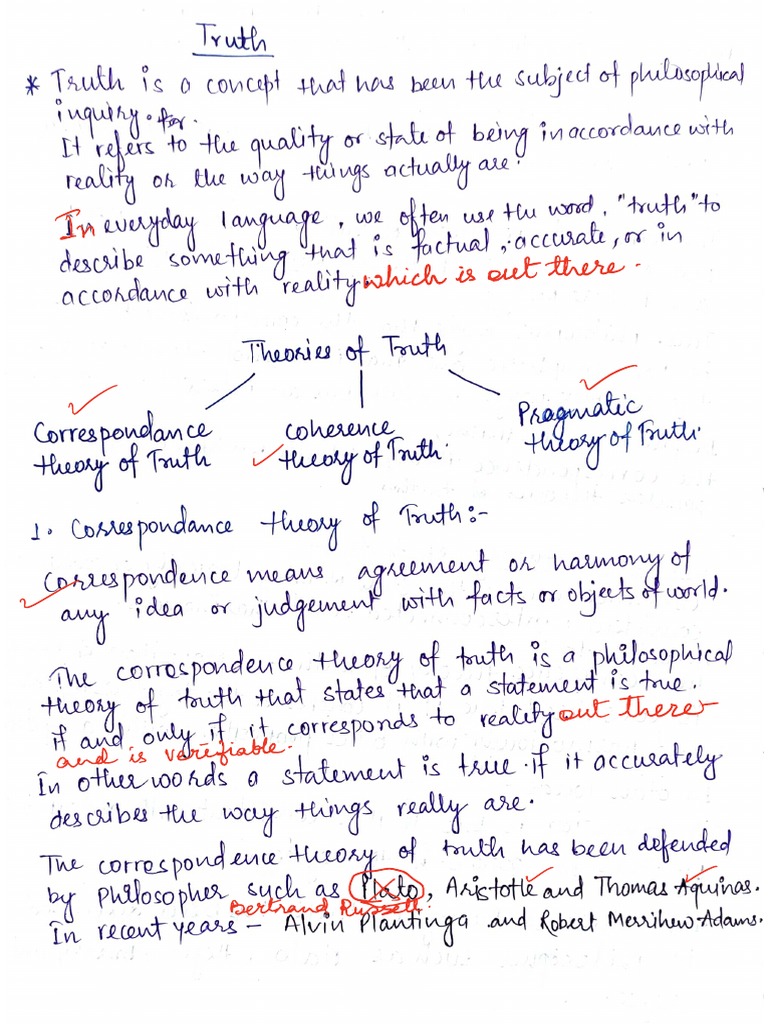 Truth
* Truth is a concept that has been the subject of philosophical
inquiry. for.
It refers to the quality or state of being in accordance with
reality or the way things actually are.
In everyday language, we often use the word, "truth" to
describe something that is factual, accurate, or in
accordance with reality which is out there.
Theories of Truth
Correspondance
theory of Truth
Coherence
theory of Truth.
Pragmatic
theory of Truth.
1. Correspondance theory of Truth:-
Correspondence means agreement or harmony of
any idea or judgement with facts or objects of world.
The correspondence theory of truth is a philosophical
theory of truth that states that a statement is true.
if and only if it corresponds to reality out there
and is verifiable.
In other words a statement is true if it accurately
describes the way things really are.
The correspondence theory of truth has been defended
by philosopher such as Plato, Aristotle and Thomas Aquinas.
Bertrand Russell.
In recent years - Alvin Plantinga and Robert Merrihew Adams.